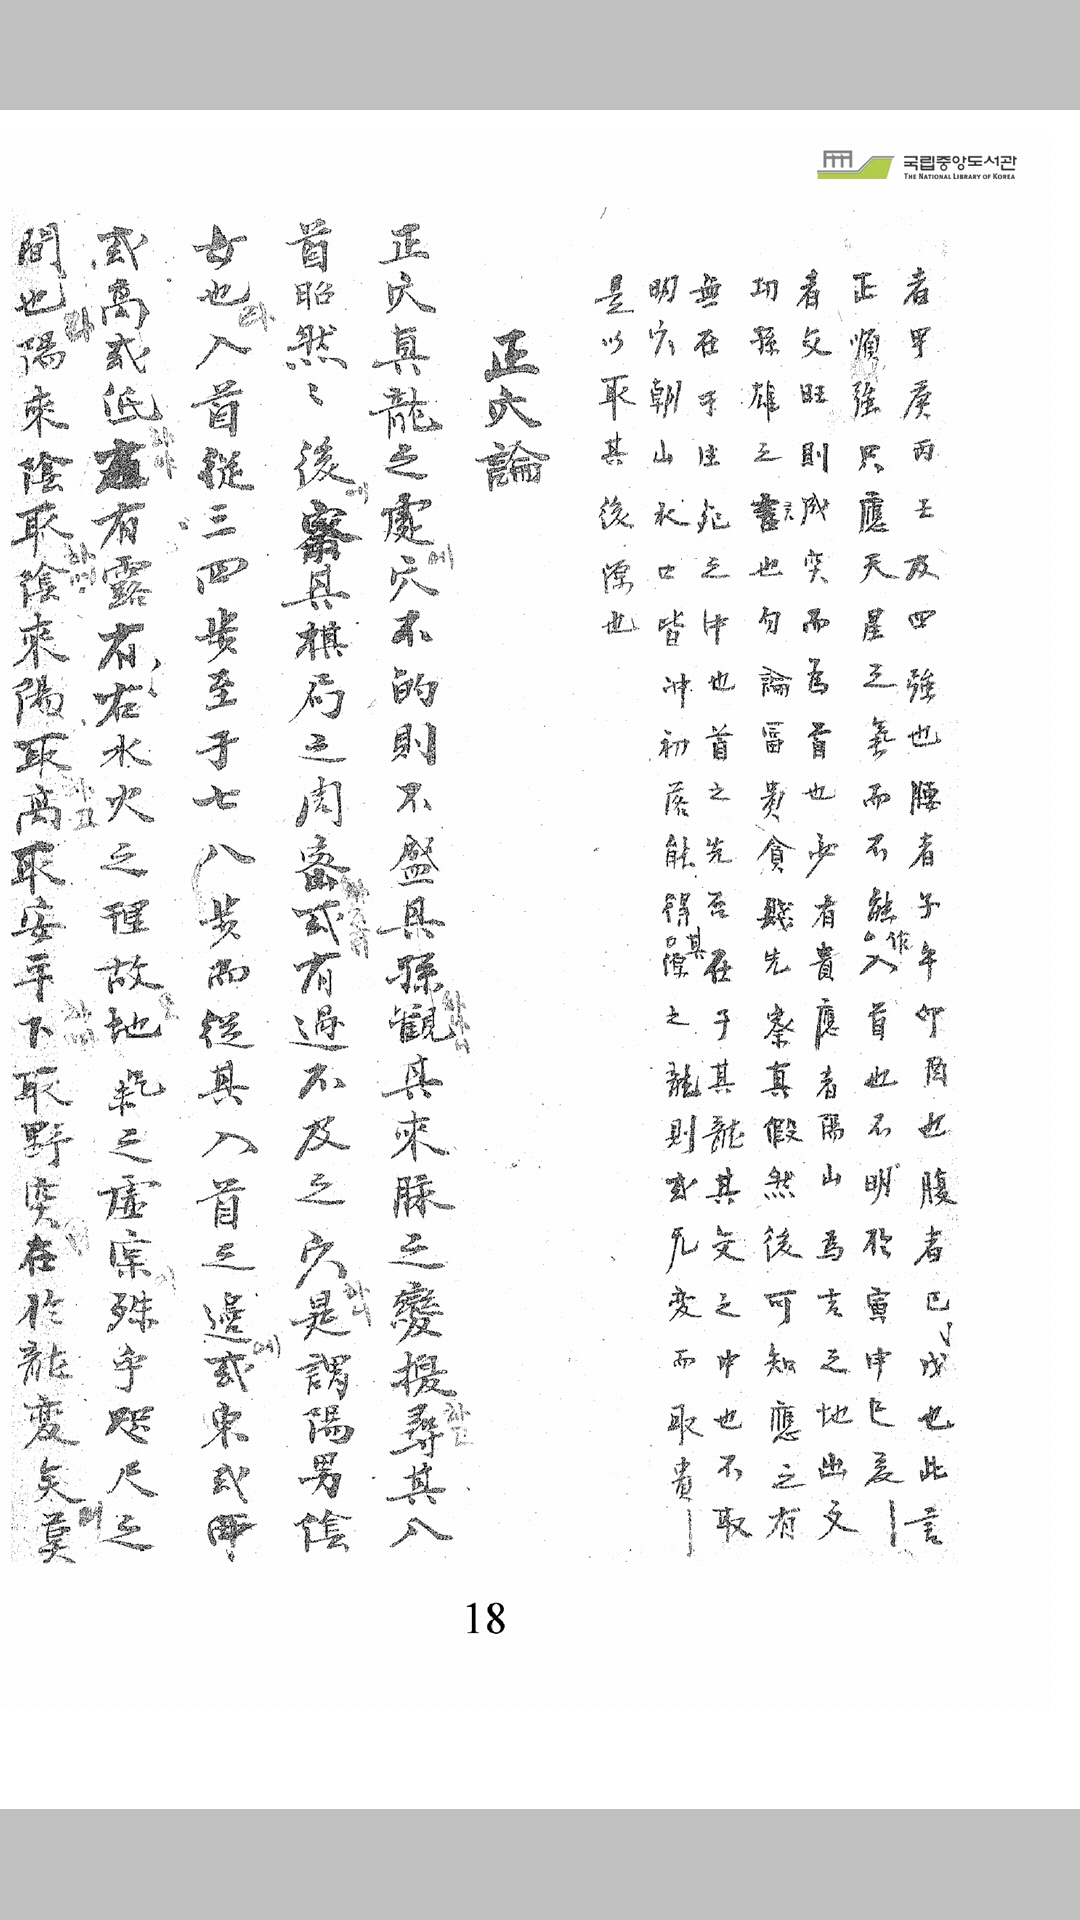 국립중앙도서관
THE NATIONAL LIBRARY OF KOREA
者甲庚丙壬及四強也腰者子午卯酉也腹者巳戌也此言
正順強只應天星之氣而不能作入首也不明於寅申巳亥
者文旺則成突而為首也少有貴應者陽山為吉之地幽文
功孫雄之言也勿論富貴貧賤先察真假然後可知應之有
無在乎注之中也首之先否在子其龍其文之中也不取
明穴朝山水口皆冲初落能得其源之龍則或凡変而取貴
是以取其後源也
正穴論
正穴真龍之處에穴不的則不盛具孫觀其來脉之變揖尋其入
首昭然〻後에察其棋局之周密或有過不及之穴是謂陽男陰
女也라入首從三四步至于七八步而從其入首之邊에或東或
或高或低有露有右水火之理故地氣之虛宗殊乎咫尺之
間也라陽來陰取陰來陽取高取安平下取野突在於龍変矣莫
18